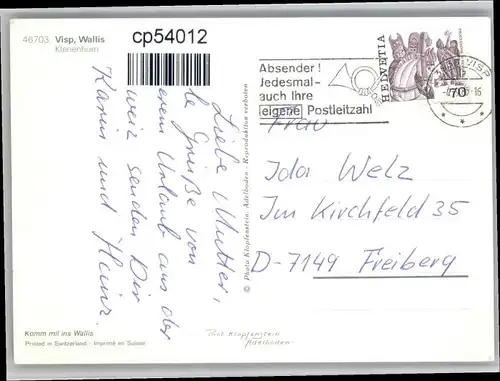 46703 Visp, Wallis
Klenenhorn
cp54012
Absender!
Jedesmal-
auch Ihre
eigene Postleitzahl
HELVETIA
70
VISP
Liebe Mutter,
Grüße von
Urlaub aus der
senden Dir
Karin und Heinz.
© Photo Klopfenstein, Adelboden - Reproduktion verboten
Frau
Ida Welz
Im Kirchfeld 35
D-7149 Freiberg
Komm mit ins Wallis
Printed in Switzerland - Imprimé en Suisse
Photo Klopfenstein
Adelboden